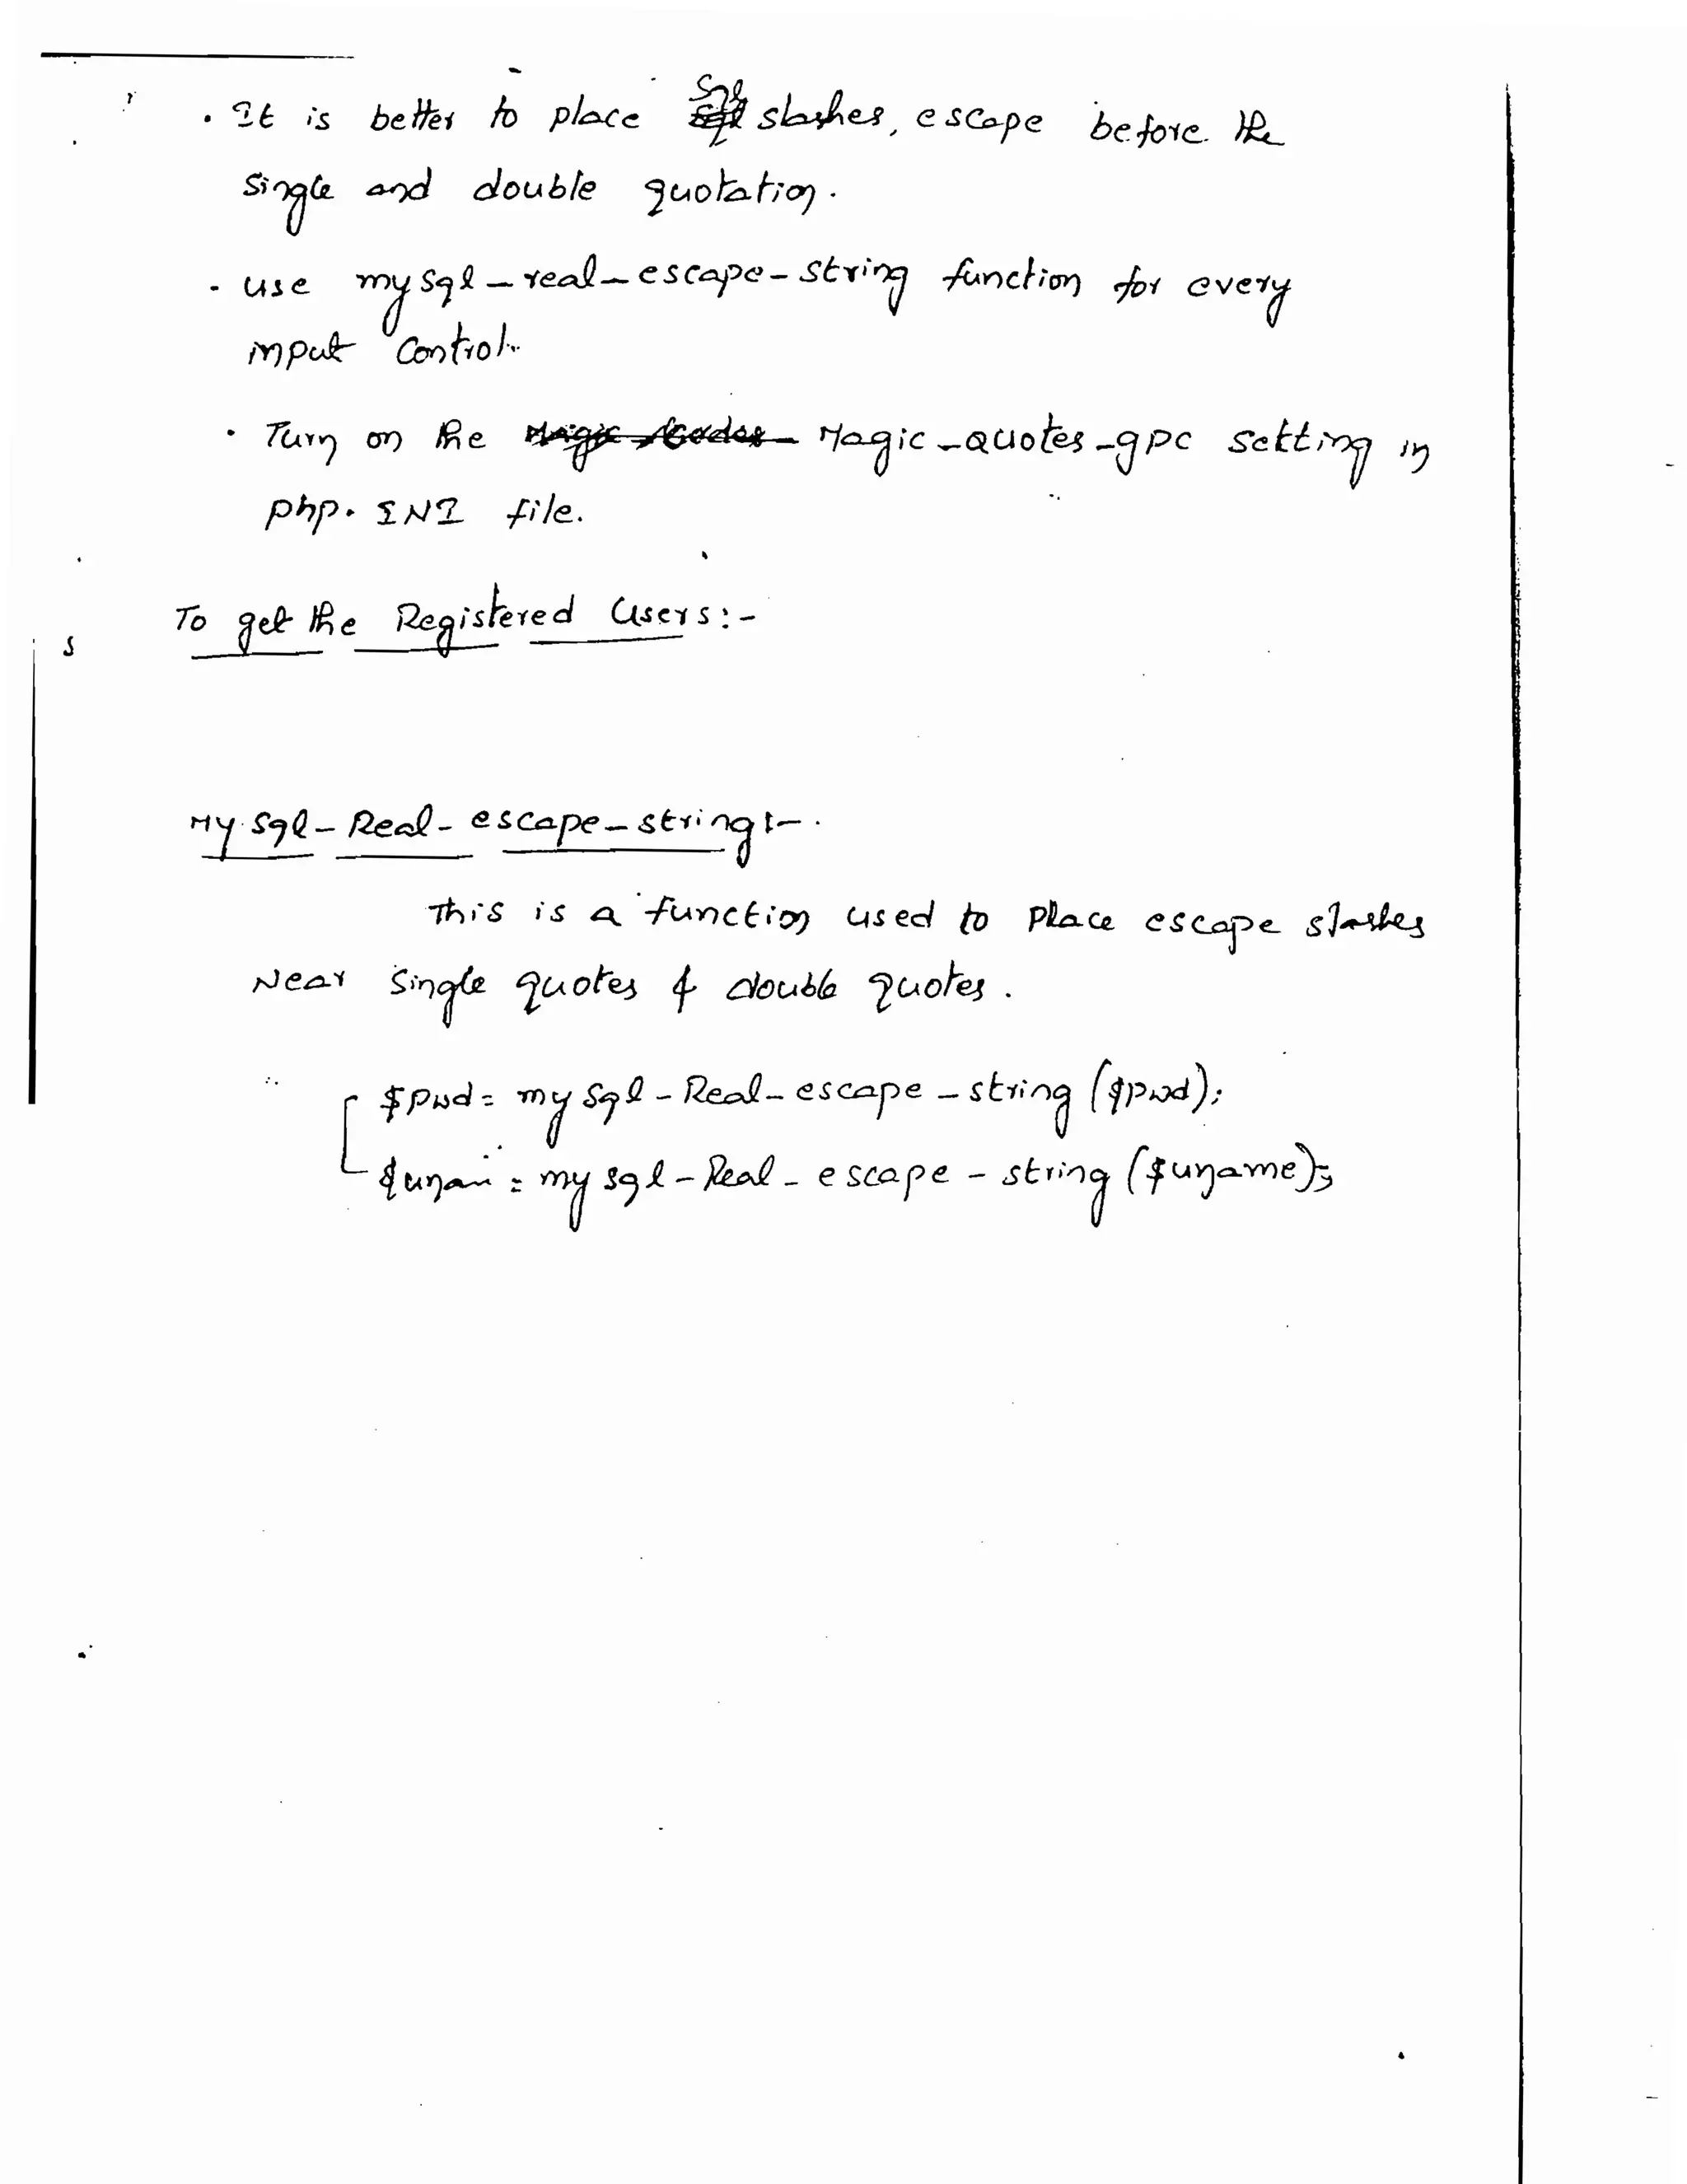 . It is better to place Sql slashes, escape before the
single and double quotation.
- use mysql_real_escape_string function for every
input control.
. Turn on the Magic_Quotes_gpc setting in
php.INI file.
To get the Registered Users:-
My sql_Real_escape_string:-
This is a function used to place escape slashes
Near single quotes & double quotes.
$pwd = mysql_Real_escape_string ($pwd);
= mysql_Real_escape_string ($uname);